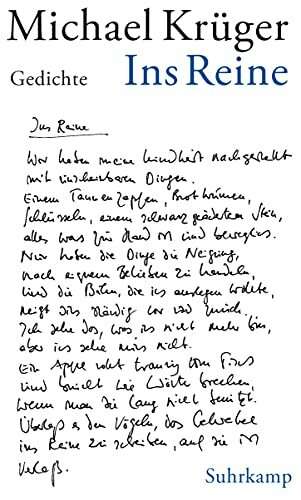 Michael Krüger
Gedichte Ins Reine
Ins Reine
Wir haben meine Kindheit nachgestellt
mit unscheinbaren Dingen.
Einem Tannenzapfen, Brotkrümen,
Schlüsseln, einem schwarz geäderten Stein,
alles was zur Hand ist und beweglich.
Nur haben die Dinge die Neigung,
nach eigenem Belieben zu handeln,
und die Bühne, die sie anlegen wollte,
neigt sich ständig vor und zurück.
Ich sehe das, was ich nicht mehr bin,
aber ich sehe mich nicht.
Ein Apfel rollt traurig vom Tisch
und bricht wie Worte brechen,
wenn man sie lang nicht benützt.
Überlaß es den Vögeln, das
ins Reine zu schreiben, auf die ist
Verlaß.
Suhrkamp